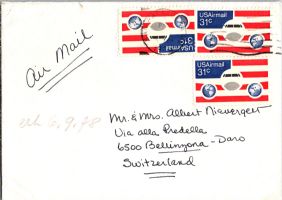 USAirmail
31¢
USAirmail
31¢
USAirmail
31¢
Air Mail
Mr. & Mrs. Albert Nievergelt
Via alla Predella
6500 Bellinzona - Daro
Switzerland
6.9.78